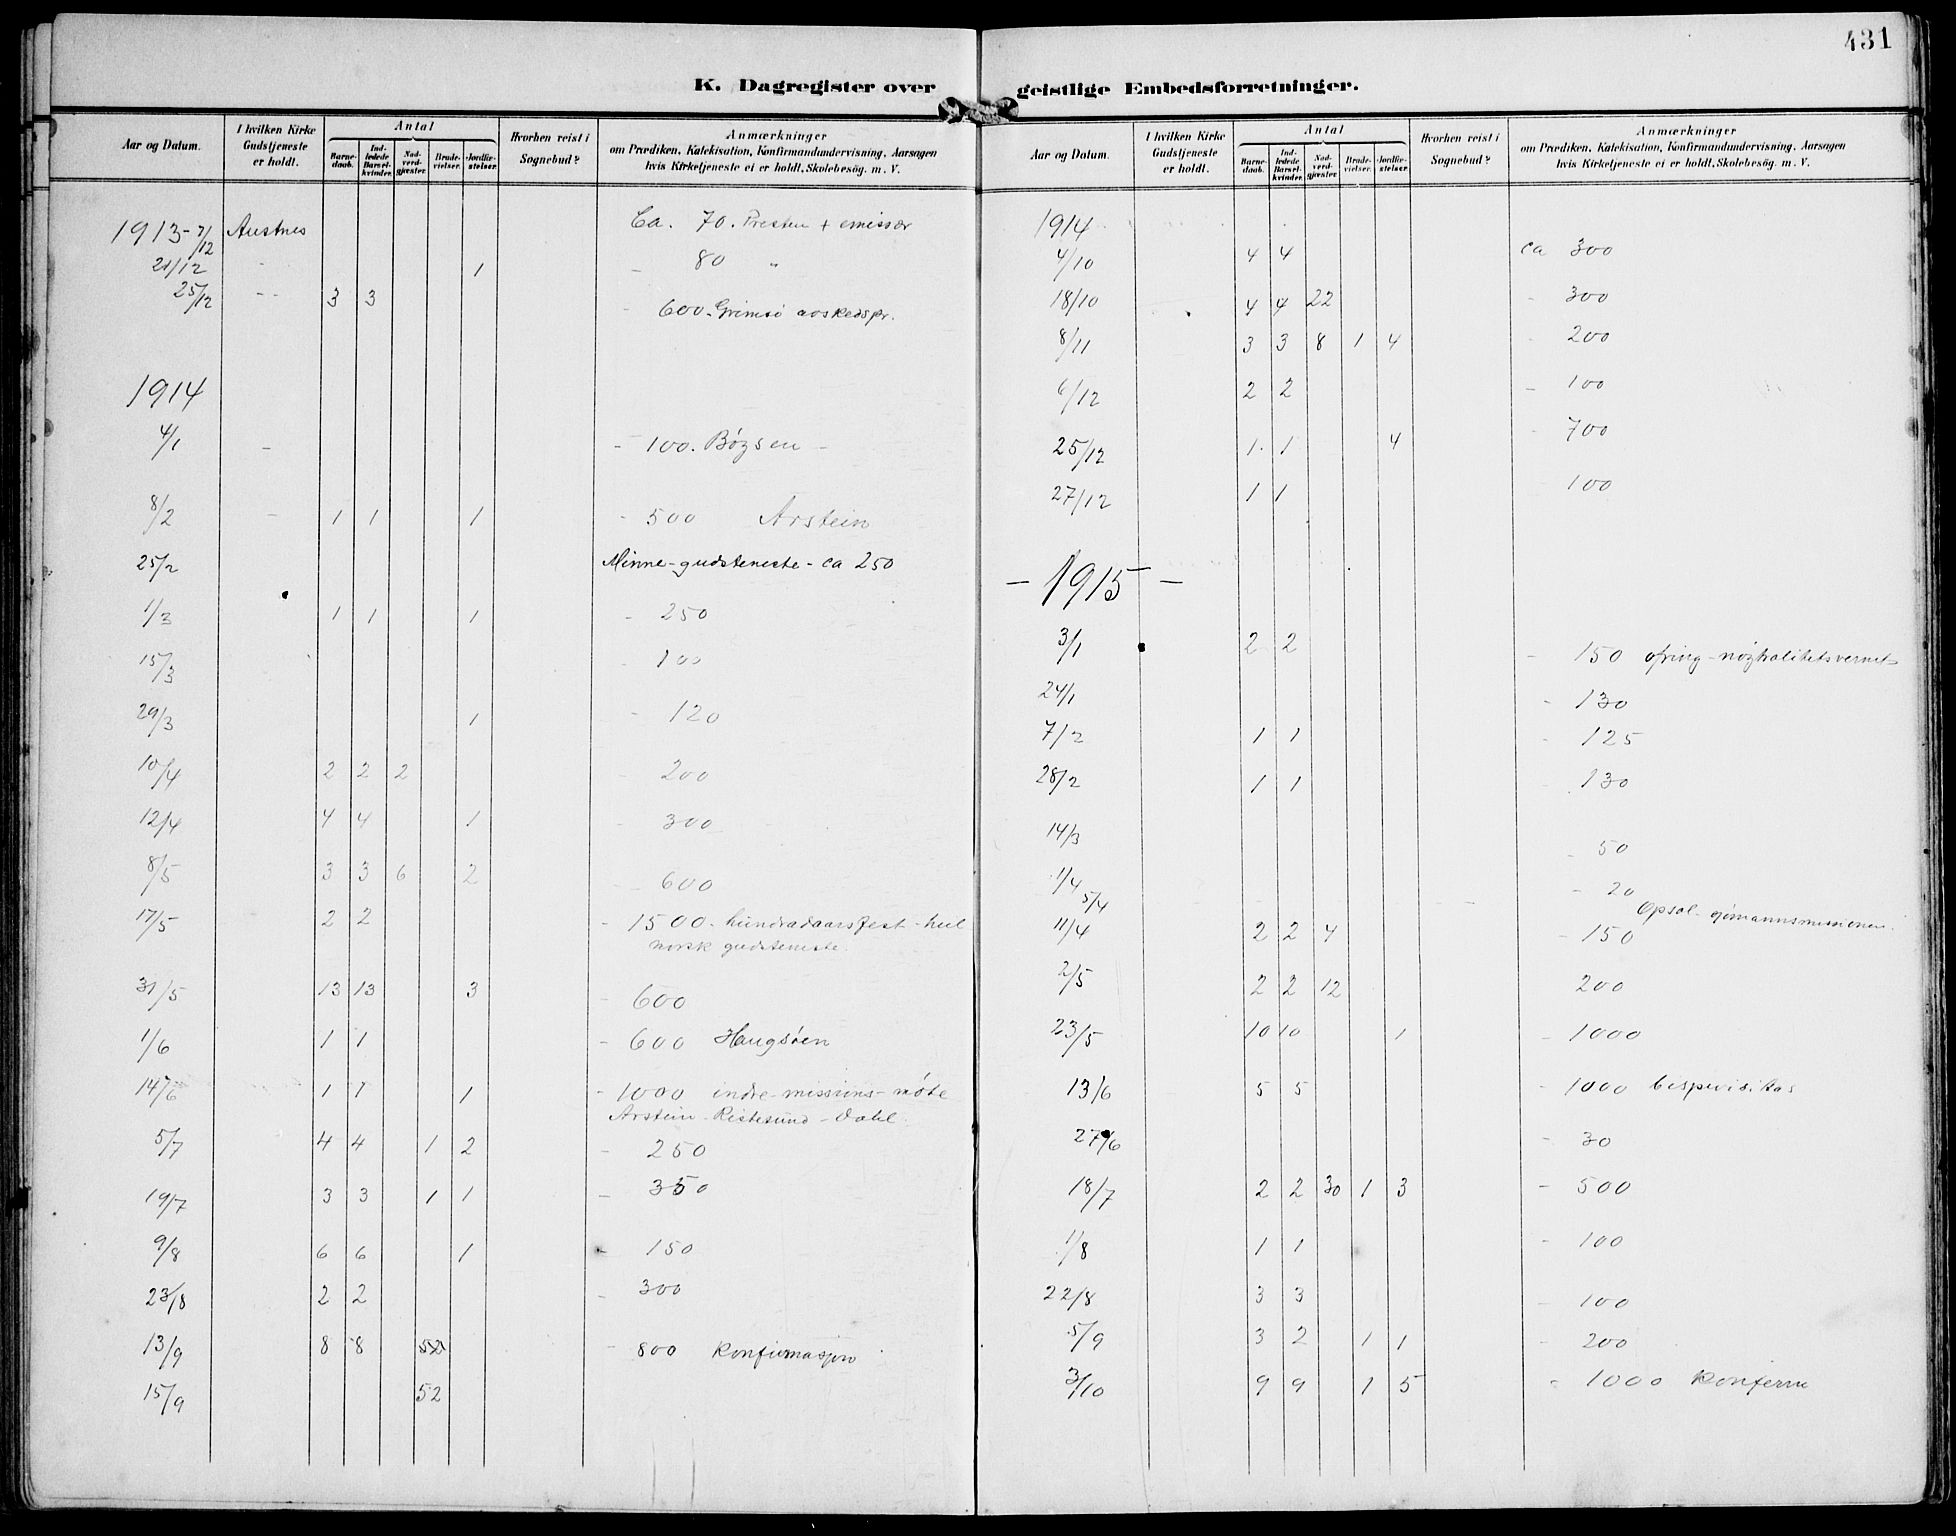 431
K. Dagregister over geistlige Embedsforretninger.
Aar og Datum. I hvilken Kirke Gudstjeneste er holdt. Antal Barnedaab. Indledede Barselkvinder. Nadverdgjæster. Brudevielser. Jordfæstelser. Hvorhen reist i Sognebud? Anmærkninger om Prædiken, Katekisation, Konfirmandundervisning, Aarsagen hvis Kirketjeneste ei er holdt, Skolebesøg. m. V.
1913 - 7/12 Austnes Ca. 70. Presten + emissær
21/12 - 1 - 80 "
25/12 - - 3 3 - 600. Grimsö avskedspr.
1914
4/1 - - 100. Bózsen -
8/2 - 1 1 1 - 500 Arstein
25/2 Minne-gudsteneste - ca 250
1/3 1 1 1 - 250
15/3 - 100
29/3 1 - 120
10/4 2 2 2 - 200
12/4 4 4 1 - 300
8/5 3 3 6 2 - 600
17/5 2 2 - 1500. hundradaarsfest - heil
norsk gudsteneste.
31/5 13 13 3 - 600
1/6 1 1 - 600 Haugsöen
14/6 1 1 1 - 1000 indre-missions-móte
Arstein - Ristesund - Dahl.
5/7 4 4 1 2 - 250
19/7 3 3 1 1 - 350
9/8 6 6 1 - 150
23/8 2 2 - 300
13/9 8 8 52 - 800 Konfirmasjon
15/9 52
Aar og Datum. I hvilken Kirke Gudstjeneste er holdt. Antal Barnedaab. Indledede Barselkvinder. Nadverdgjæster. Brudevielser. Jordfæstelser Hvorhen reist i Sognebud? Anmærkninger om Prædiken, Katekisation, Konfirmandundervisning, Aarsagen hvis Kirketjeneste ei er holdt, Skolebesøg. m. V.
1914
4/10 4 4 ca 300
18/10 4 4 22 - 300
8/11 3 3 8 1 4 - 200
6/12 2 2 - 100
25/12 1 1 4 - 700
27/12 1 1 100
- 1915 -
3/1 2 2 - 150 ofring - nøztralitetsvernet
24/1 - 130
7/2 1 1 - 125
28/2 1 1 - 130
14/3 - 50
1/4 - 20
5/4 Opsal - sjømannsmissionen.
11/4 2 2 4 - 150
2/5 2 2 12 200
23/5 10 10 1 - 1000
13/6 5 5 - 1000 bispevisitas
27/6 - 30
18/7 2 2 30 1 3 - 500
1/8 1 1 - 100
22/8 3 3 - 100
5/9 3 2 1 1 - 200
3/10 9 9 1 5 - 1000 Konferm